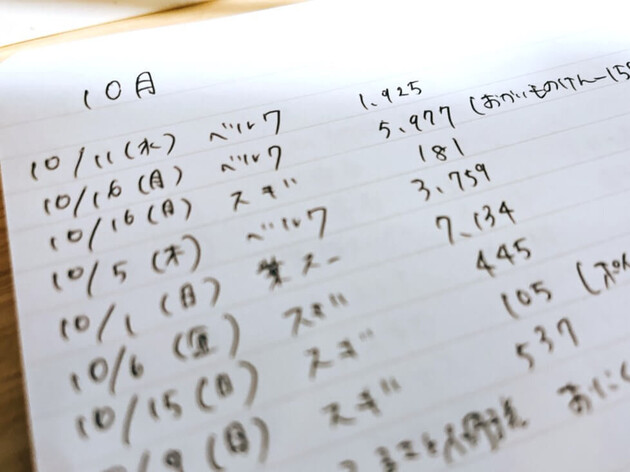 10月
10/11(水) ベルク 1,925
10/16(月) ベルク 5,977 (おかいものけんー15
10/16(月) スギ 181
10/5(木) ベルク 3,759
10/1(日) 業スー 7,134
10/6(金) スギ 445
10/15(日) スギ 105
10/9(月) スギ 537